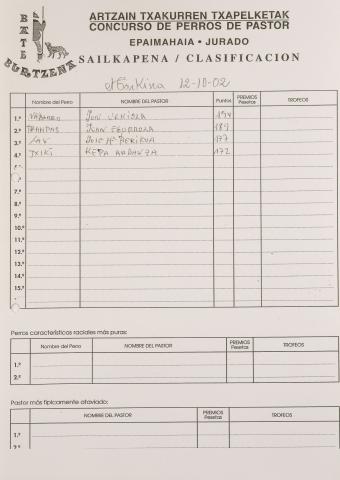 BATE
BURTZENA
ARTZAIN TXAKURREN TXAPELKETAK
CONCURSO DE PERROS DE PASTOR
EPAIMAHAIA • JURADO
SAILKAPENA / CLASIFICACION
12-10-02
Nombre del Perro NOMBRE DEL PASTOR Puntos PREMIOS Pesetas TROFEOS
1.º JON 194
2.º TRANPAS JUAN 189
3.º LAN JOSE Mª 177
4.º TXIKI KEPA 172
5.º
6.º
7.º
8.º
9.º
10.º
11.º
12.º
13.º
14.º
15.º
Perros característicos raciales más puros:
Nombre del Perro NOMBRE DEL PASTOR PREMIOS Pesetas TROFEOS
1.º
2.º
Pastor más típicamente ataviado:
NOMBRE DEL PASTOR PREMIOS Pesetas TROFEOS
1.º
2.º